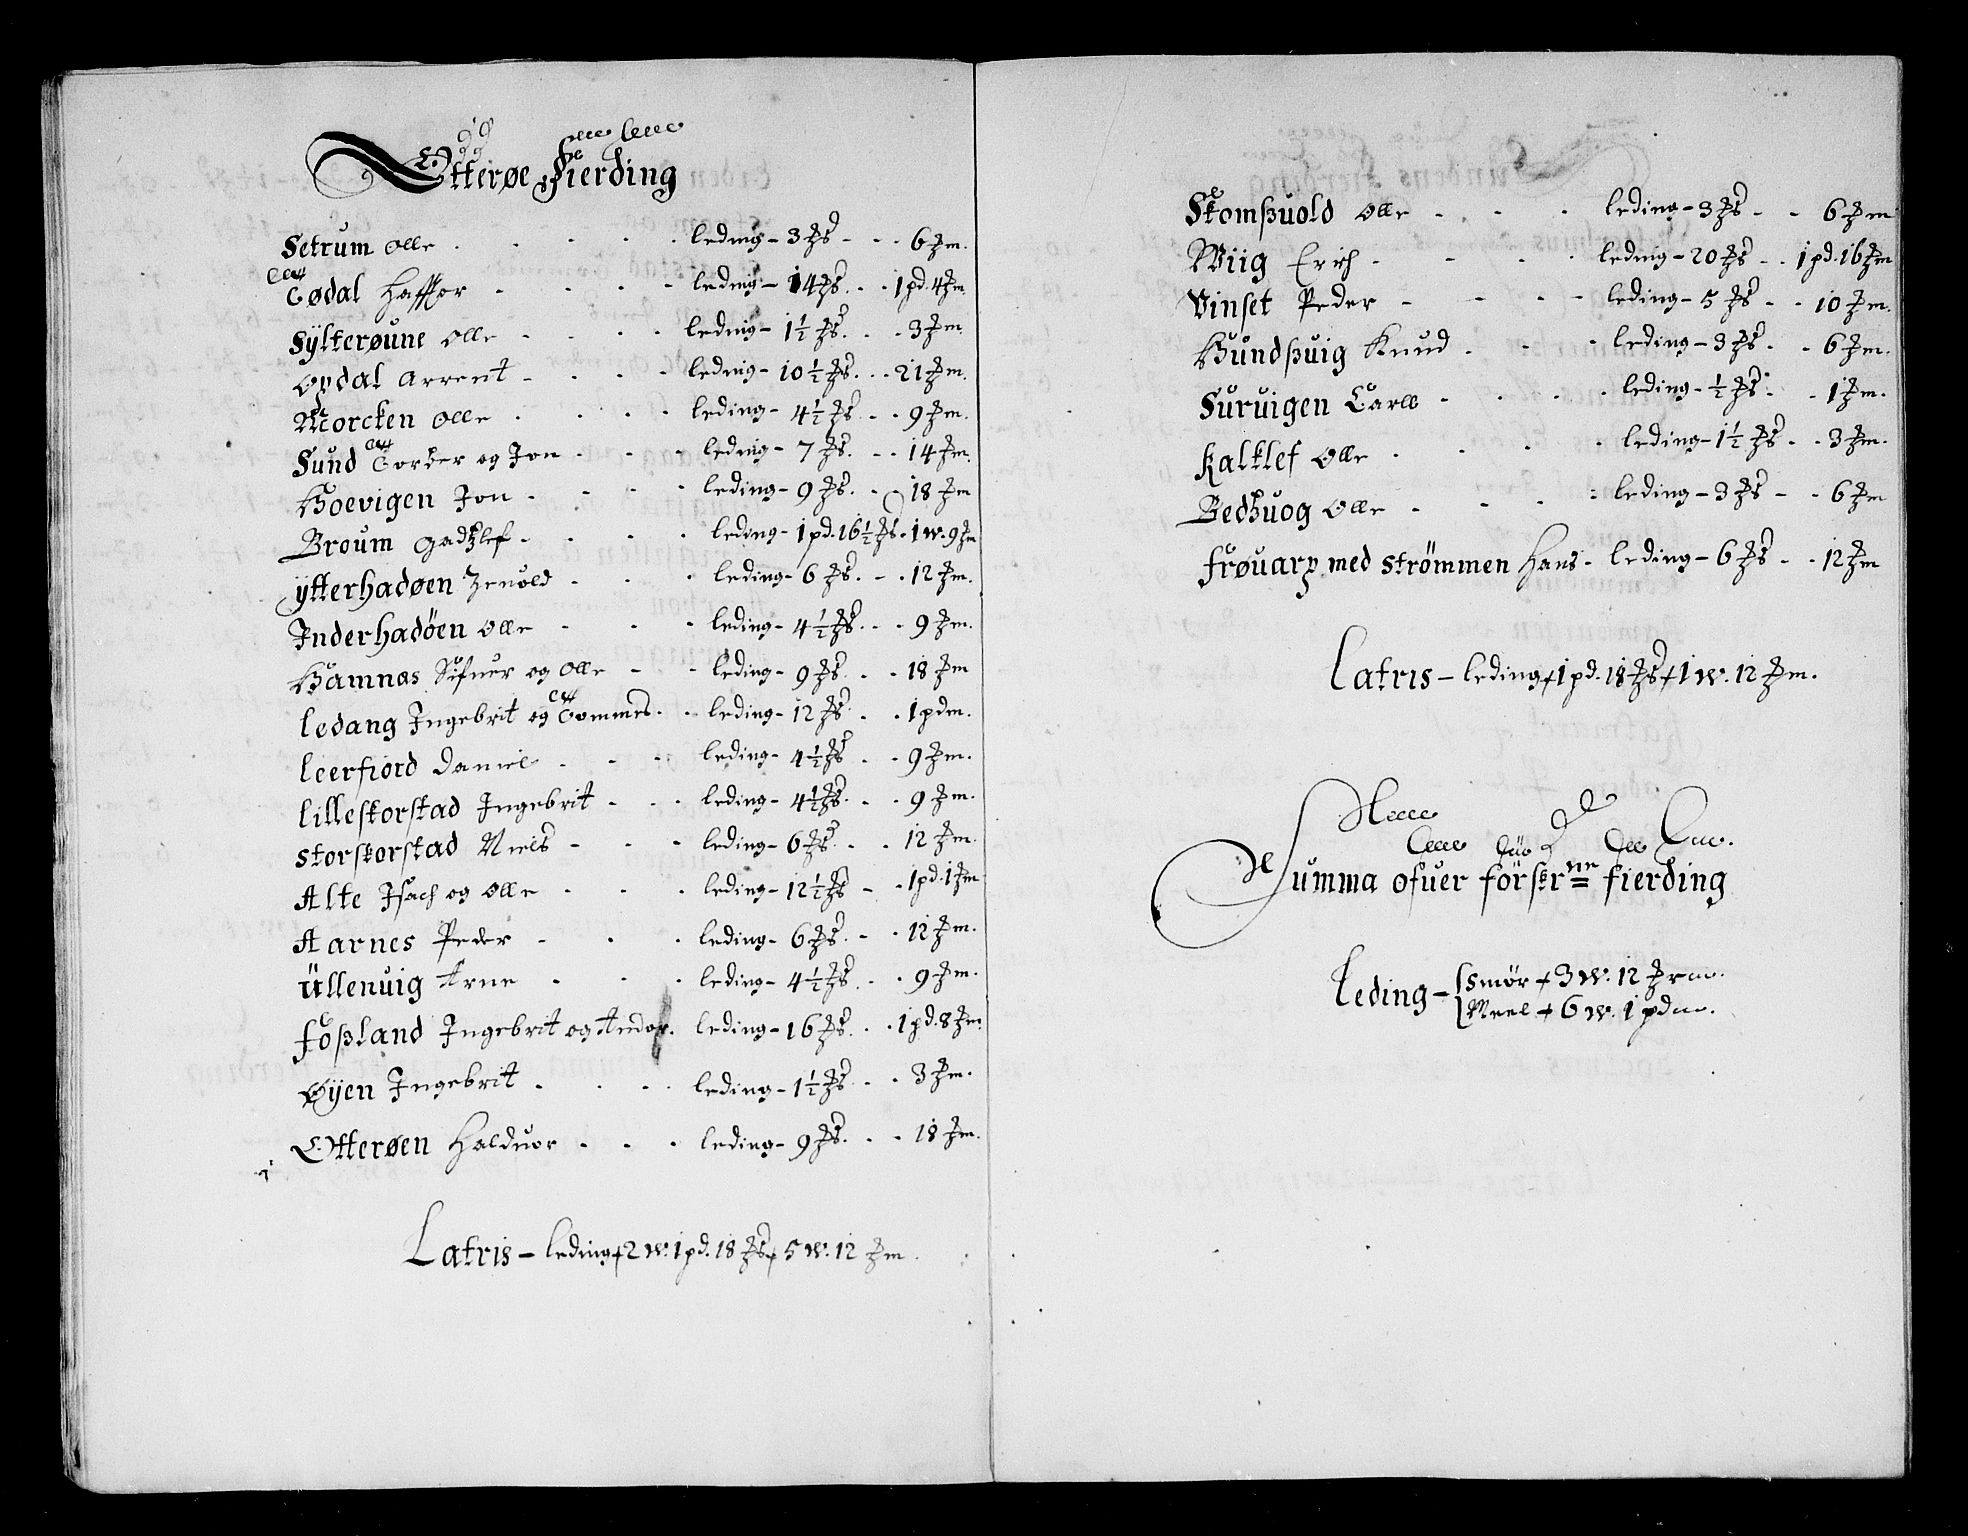 Otterøe Fierding
Setrum Olle - - - - leding - 3 ℔s - - 6 ℔m.
Tødal Haffor - - - leding - 14 ℔s. - - 1 pd. 4 ℔m.
Sylterøune Olle - - - leding - 1½ ℔s. - - 3 ℔m
Opdal Arrent - - - leding - 10½ ℔s. - - 21 ℔m.
Morcken Olle - - - leding - 4½ ℔s - - 9 ℔m.
Sund Torber og Jon - - - leding - 7 ℔s. - - 14 ℔m.
Hoevigen Jon - - - leding - 9 ℔s. - - 18 ℔m
Broum - - - leding - 1 pd. 16½ ℔s. 1 w. 9 ℔m
Ytterhadøen - - leding - 6 ℔s. - - 12 ℔m.
Inderhadöen Olle - - - leding - 4½ ℔s. - - 9 ℔m.
Hamnas Sifuer og Olle - - leding - 9 ℔s. - - 18 ℔m
Ledang Ingebrit og Tommes. - leding - 12 ℔s - - 1 pdm.
Leerfiord Daniel - - - leding - 4½ ℔s - - 9 ℔m.
Lilleskorstad Ingebrit - - - leding - 4½ ℔s. - - 9 ℔m.
Storskorstad Niels - - - leding - 6 ℔s. - - 12 ℔m.
Alte Isach og Olle - - - leding - 12½ ℔s - - 1 pd. 1 ℔m
Aarnes Peder - - - leding - 6 ℔s. - - 12 ℔m.
Üllenuig Arne - - - leding - 4½ ℔s. - - 9 ℔m.
Foßland Ingebrit og Andor. leding - 16 ℔s. - - 1 pd. 8 ℔m.
Øyen Ingebrit - - - leding - 1½ ℔s. - - 3 ℔m.
Otterøen Halduor - - - leding - 9 ℔s. - - 18 ℔m.
Latris - leding + 2 w. 1 pd. 18 ℔s + 5 w. 12 ℔m.
Skomßuold Olle - - - leding - 3 ℔s - - 6 ℔m
Wiig Erich - - - leding - 20 ℔s - - 1 pd. 16 ℔m
Vinset Peder - - - leding - 5 ℔s - - 10 ℔m.
Hundßuig Knud - - - leding - 3 ℔s. - - 6 ℔m.
Suruigen Carll - - - leding - ½ ℔s. - - 1 ℔m.
Kalklef Olle - - - leding - 1½ ℔s - - 3 ℔m.
Bedßuog Olle - - - leding - 3 ℔s - - 6 ℔m
Frøuarp med Strömmen Hans - leding - 6 ℔s - - 12 ℔m
Latris - leding + 1 pd. 18 ℔s + 1 w. 12 ℔m.
Summa ofuer förskrne Fierding
Leding - Smør + 3 w. 12 ℔rm.
Meel + 6 w. 1 pdm.